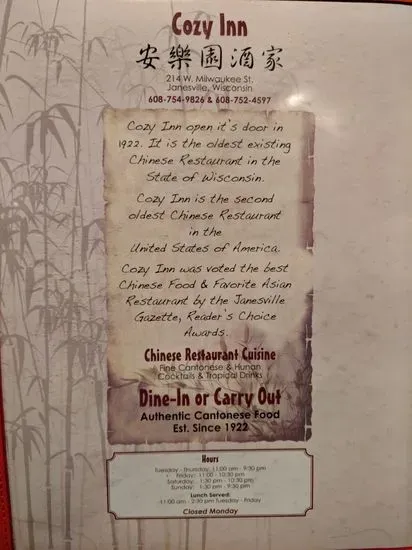 Cozy Inn
安樂園酒家
214 W. Milwaukee St.
Janesville, Wisconsin
608-754-9826 & 608-752-4597
Cozy Inn open it's door in
1922. It is the oldest existing
Chinese Restaurant in the
State of Wisconsin.
Cozy Inn is the second
oldest Chinese Restaurant
in the
United States of America.
Cozy Inn was voted the best
Chinese Food & Favorite Asian
Restaurant by the Janesville
Gazette, Reader's Choice
Awards.
Chinese Restaurant Cuisine
Fine Cantonese & Hunan
Cocktails & Tropical Drinks
Dine-In or Carry Out
Authentic Cantonese Food
Est. Since 1922
Hours
Tuesday - Thursday: 11:00 am - 9:30 pm
Friday: 11:00 - 10:30 pm
Saturday: 1:30 pm - 10:30 pm
Sunday: 1:30 pm - 9:30 pm
Lunch Served:
11:00 am - 2:30 pm Tuesday - Friday
Closed Monday